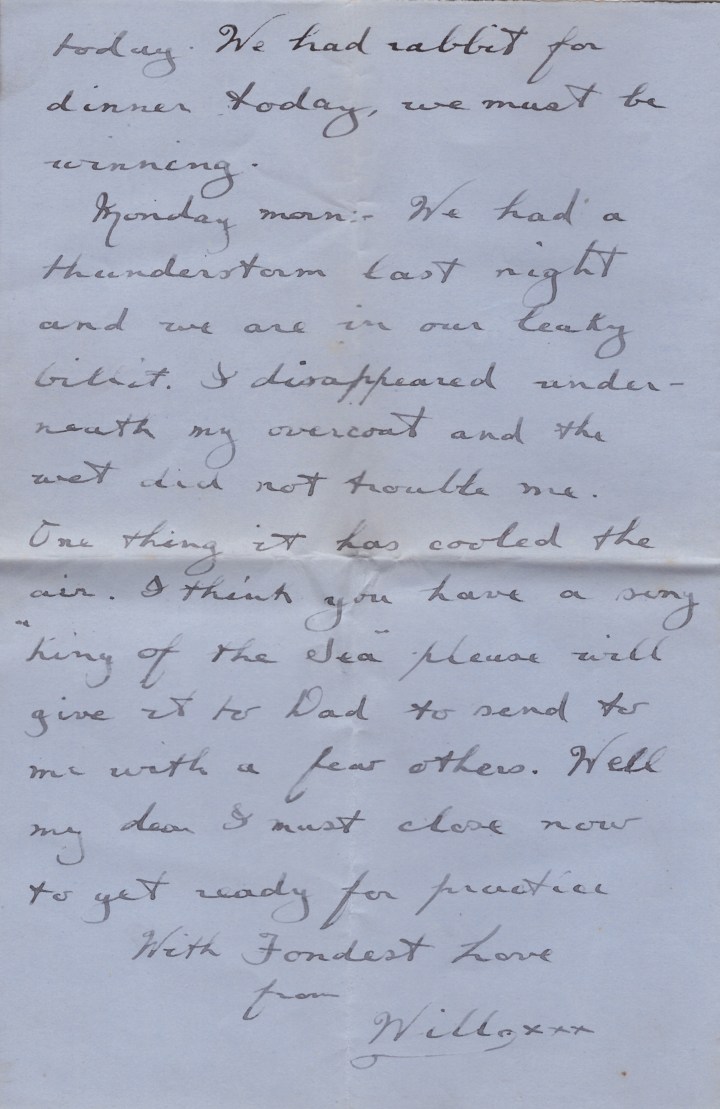 today. We had rabbit for
dinner today, we must be
winning.
Monday morn:- We had a
thunderstorm last night
and we are in our leaky
billit. I disappeared under-
neath my overcoat and the
wet did not trouble me.
One thing it has cooled the
air. I think you have a song
"King of the Sea" please will
give it to Dad to send to
me with a few others. Well
my dear I must close now
to get ready for practice
With Fondest Love
from
Will xxx